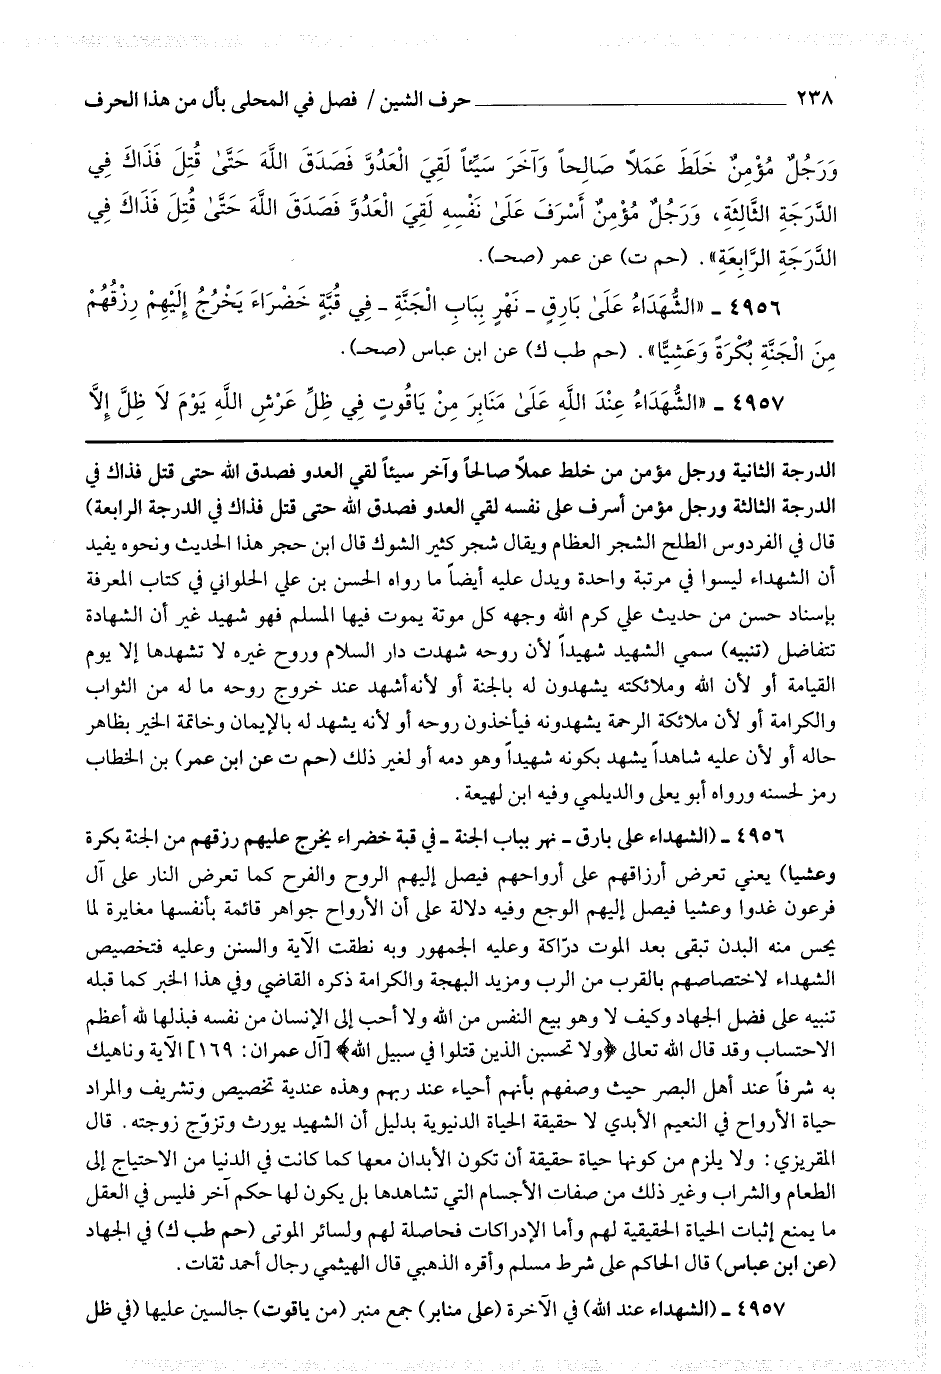 ٢٣٨ ــــــــــــــــــــ حرف الشين / فصل في المحلى بأل من هذا الحرف
وَرَجُلٌ مُؤْمِنٌ خَلَطَ عَمَلاً صَالِحاً وَآخَرَ سَيِّئاً لَقِيَ الْعَدُوَّ فَصَدَقَ اللَّهَ حَتَّىٰ قُتِلَ فَذَاكَ فِي
الدَّرَجَةِ الثَّالِثَةِ، وَرَجُلٌ مُؤْمِنٌ أَسْرَفَ عَلَىٰ نَفْسِهِ لَقِيَ الْعَدُوَّ فَصَدَقَ اللَّهَ حَتَّىٰ قُتِلَ فَذَاكَ فِي
الدَّرَجَةِ الرَّابِعَةِ». (حم ت) عن عمر (صحـ).
٤٩٥٦ ـ «الشُّهَدَاءُ عَلَىٰ بَارِقٍ ـ نَهْرٍ بِبَابِ الْجَنَّةِ ـ فِي قُبَّةٍ خَضْرَاءَ يَخْرُجُ إِلَيْهِمْ رِزْقُهُمْ
مِنَ الْجَنَّةِ بُكْرَةً وَعَشِيًّا». (حم طب ك) عن ابن عباس (صحـ).
٤٩٥٧ ـ «الشُّهَدَاءُ عِنْدَ اللَّهِ عَلَىٰ مَنَابِرَ مِنْ يَاقُوتٍ فِي ظِلِّ عَرْشِ اللَّهِ يَوْمَ لَا ظِلَّ إِلاَّ
الدرجة الثانية ورجل مؤمن من خلط عملاً صالحاً وآخر سيئاً لقي العدو فصدق الله حتى قتل فذاك في
الدرجة الثالثة ورجل مؤمن أسرف على نفسه لقي العدو فصدق الله حتى قتل فذاك في الدرجة الرابعة)
قال في الفردوس الطلح الشجر العظام ويقال شجر كثير الشوك قال ابن حجر هذا الحديث ونحوه يفيد
أن الشهداء ليسوا في مرتبة واحدة ويدل عليه أيضاً ما رواه الحسن بن علي الحلواني في كتاب المعرفة
بإسناد حسن من حديث علي كرم الله وجهه كل موتة يموت فيها المسلم فهو شهيد غير أن الشهادة
تتفاضل (تنبيه) سمي الشهيد شهيداً لأن روحه شهدت دار السلام وروح غيره لا تشهدها إلا يوم
القيامة أو لأن الله وملائكته يشهدون له بالجنة أو لأنه أشهد عند خروج روحه ما له من الثواب
والكرامة أو لأن ملائكة الرحمة يشهدونه فيأخذون روحه أو لأنه يشهد له بالإيمان وخاتمة الخير بظاهر
حاله أو لأن عليه شاهداً يشهد بكونه شهيداً وهو دمه أو لغير ذلك (حم ت عن ابن عمر) بن الخطاب
رمز لحسنه ورواه أبو يعلى والديلمي وفيه ابن لهيعة.
٤٩٥٦ ـ (الشهداء على بارق ـ نهر بباب الجنة ـ في قبة خضراء يخرج عليهم رزقهم من الجنة بكرة
وعشيا) يعني تعرض أرزاقهم على أرواحهم فيصل إليهم الروح والفرح كما تعرض النار على آل
فرعون غدوا وعشيا فيصل إليهم الوجع وفيه دلالة على أن الأرواح جواهر قائمة بأنفسها مغايرة لما
يحس منه البدن تبقى بعد الموت درّاكة وعليه الجمهور وبه نطقت الآية والسنن وعليه فتخصيص
الشهداء لاختصاصهم بالقرب من الرب ومزيد البهجة والكرامة ذكره القاضي وفي هذا الخبر كما قبله
تنبيه على فضل الجهاد وكيف لا وهو بيع النفس من الله ولا أحب إلى الإنسان من نفسه فبذلها لله أعظم
الاحتساب وقد قال الله تعالى ﴿ولا تحسبن الذين قتلوا في سبيل الله﴾ [آل عمران: ١٦٩] الآية وناهيك
به شرفاً عند أهل البصر حيث وصفهم بأنهم أحياء عند ربهم وهذه عندية تخصيص وتشريف والمراد
حياة الأرواح في النعيم الأبدي لا حقيقة الحياة الدنيوية بدليل أن الشهيد يورث وتزوّج زوجته. قال
المقريزي: ولا يلزم من كونها حياة حقيقة أن تكون الأبدان معها كما كانت في الدنيا من الاحتياج إلى
الطعام والشراب وغير ذلك من صفات الأجسام التي تشاهدها بل يكون لها حكم آخر فليس في العقل
ما يمنع إثبات الحياة الحقيقية لهم وأما الإدراكات فحاصلة لهم ولسائر الموتى (حم طب ك) في الجهاد
(عن ابن عباس) قال الحاكم على شرط مسلم وأقره الذهبي قال الهيثمي رجال أحمد ثقات.
٤٩٥٧ ـ (الشهداء عند الله) في الآخرة (على منابر) جمع منبر (من ياقوت) جالسين عليها (في ظل